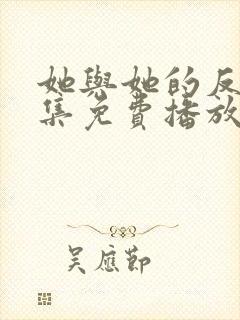 她與她的反
集免費播放
吳應節